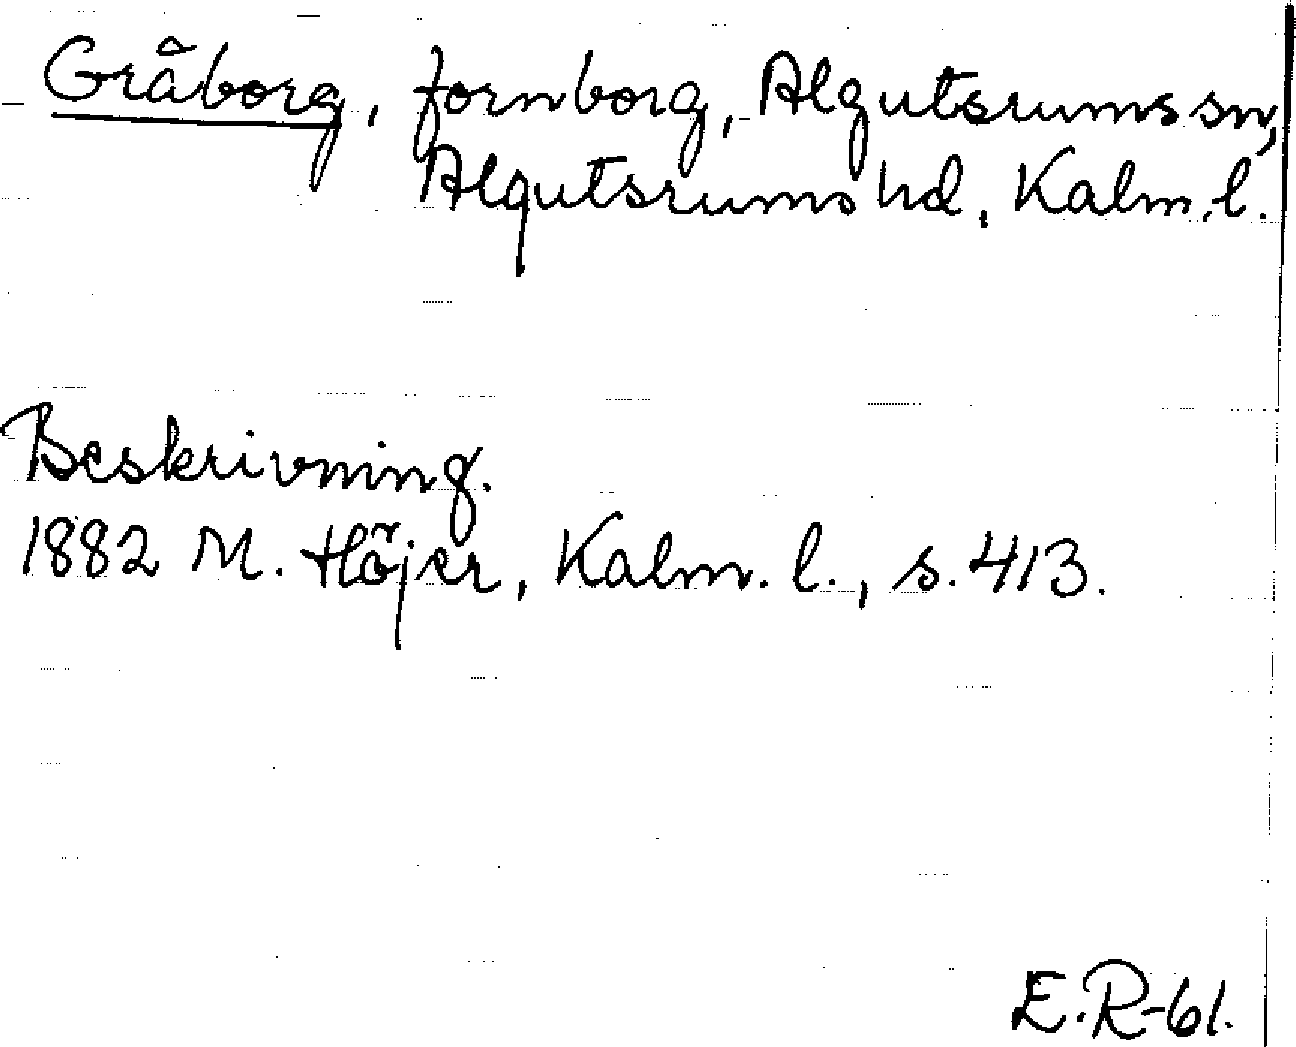 Gråborg, fornborg, Algutsrums sn,
Algutsrums hd, Kalm. l.
Beskrivning.
1882 M. Höjer, Kalm. l., s. 413.
E.R-61.